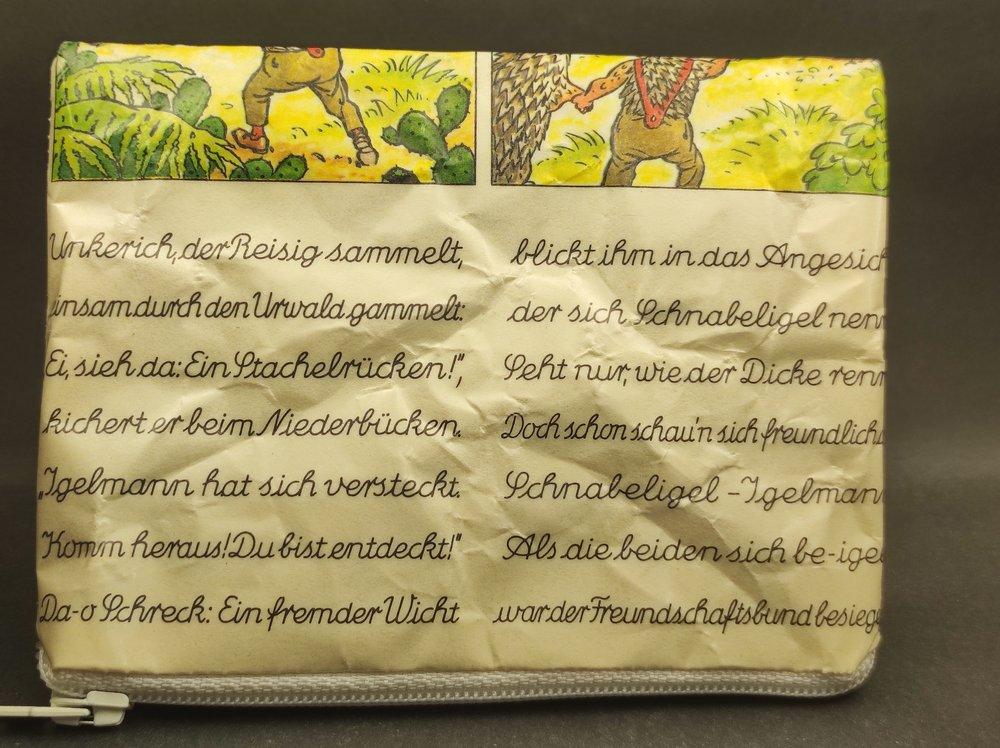 Unkerich, der Reisig sammelt,
einsam durch den Urwald gammelt:
Ei, sieh da: Ein Stachelrücken!",
kichert er beim Niederbücken.
„Igelmann hat sich versteckt.
Komm heraus! Du bist entdeckt!"
Da-o Schreck: Ein fremder Wicht
blickt ihm in das Angesich
der sich Schnabeligel nenn
Seht nur, wie der Dicke renn
Doch schon schau'n sich freundlich
Schnabeligel - Igelmann
Als die beiden sich be-ige
war der Freundschaftsbund besieg